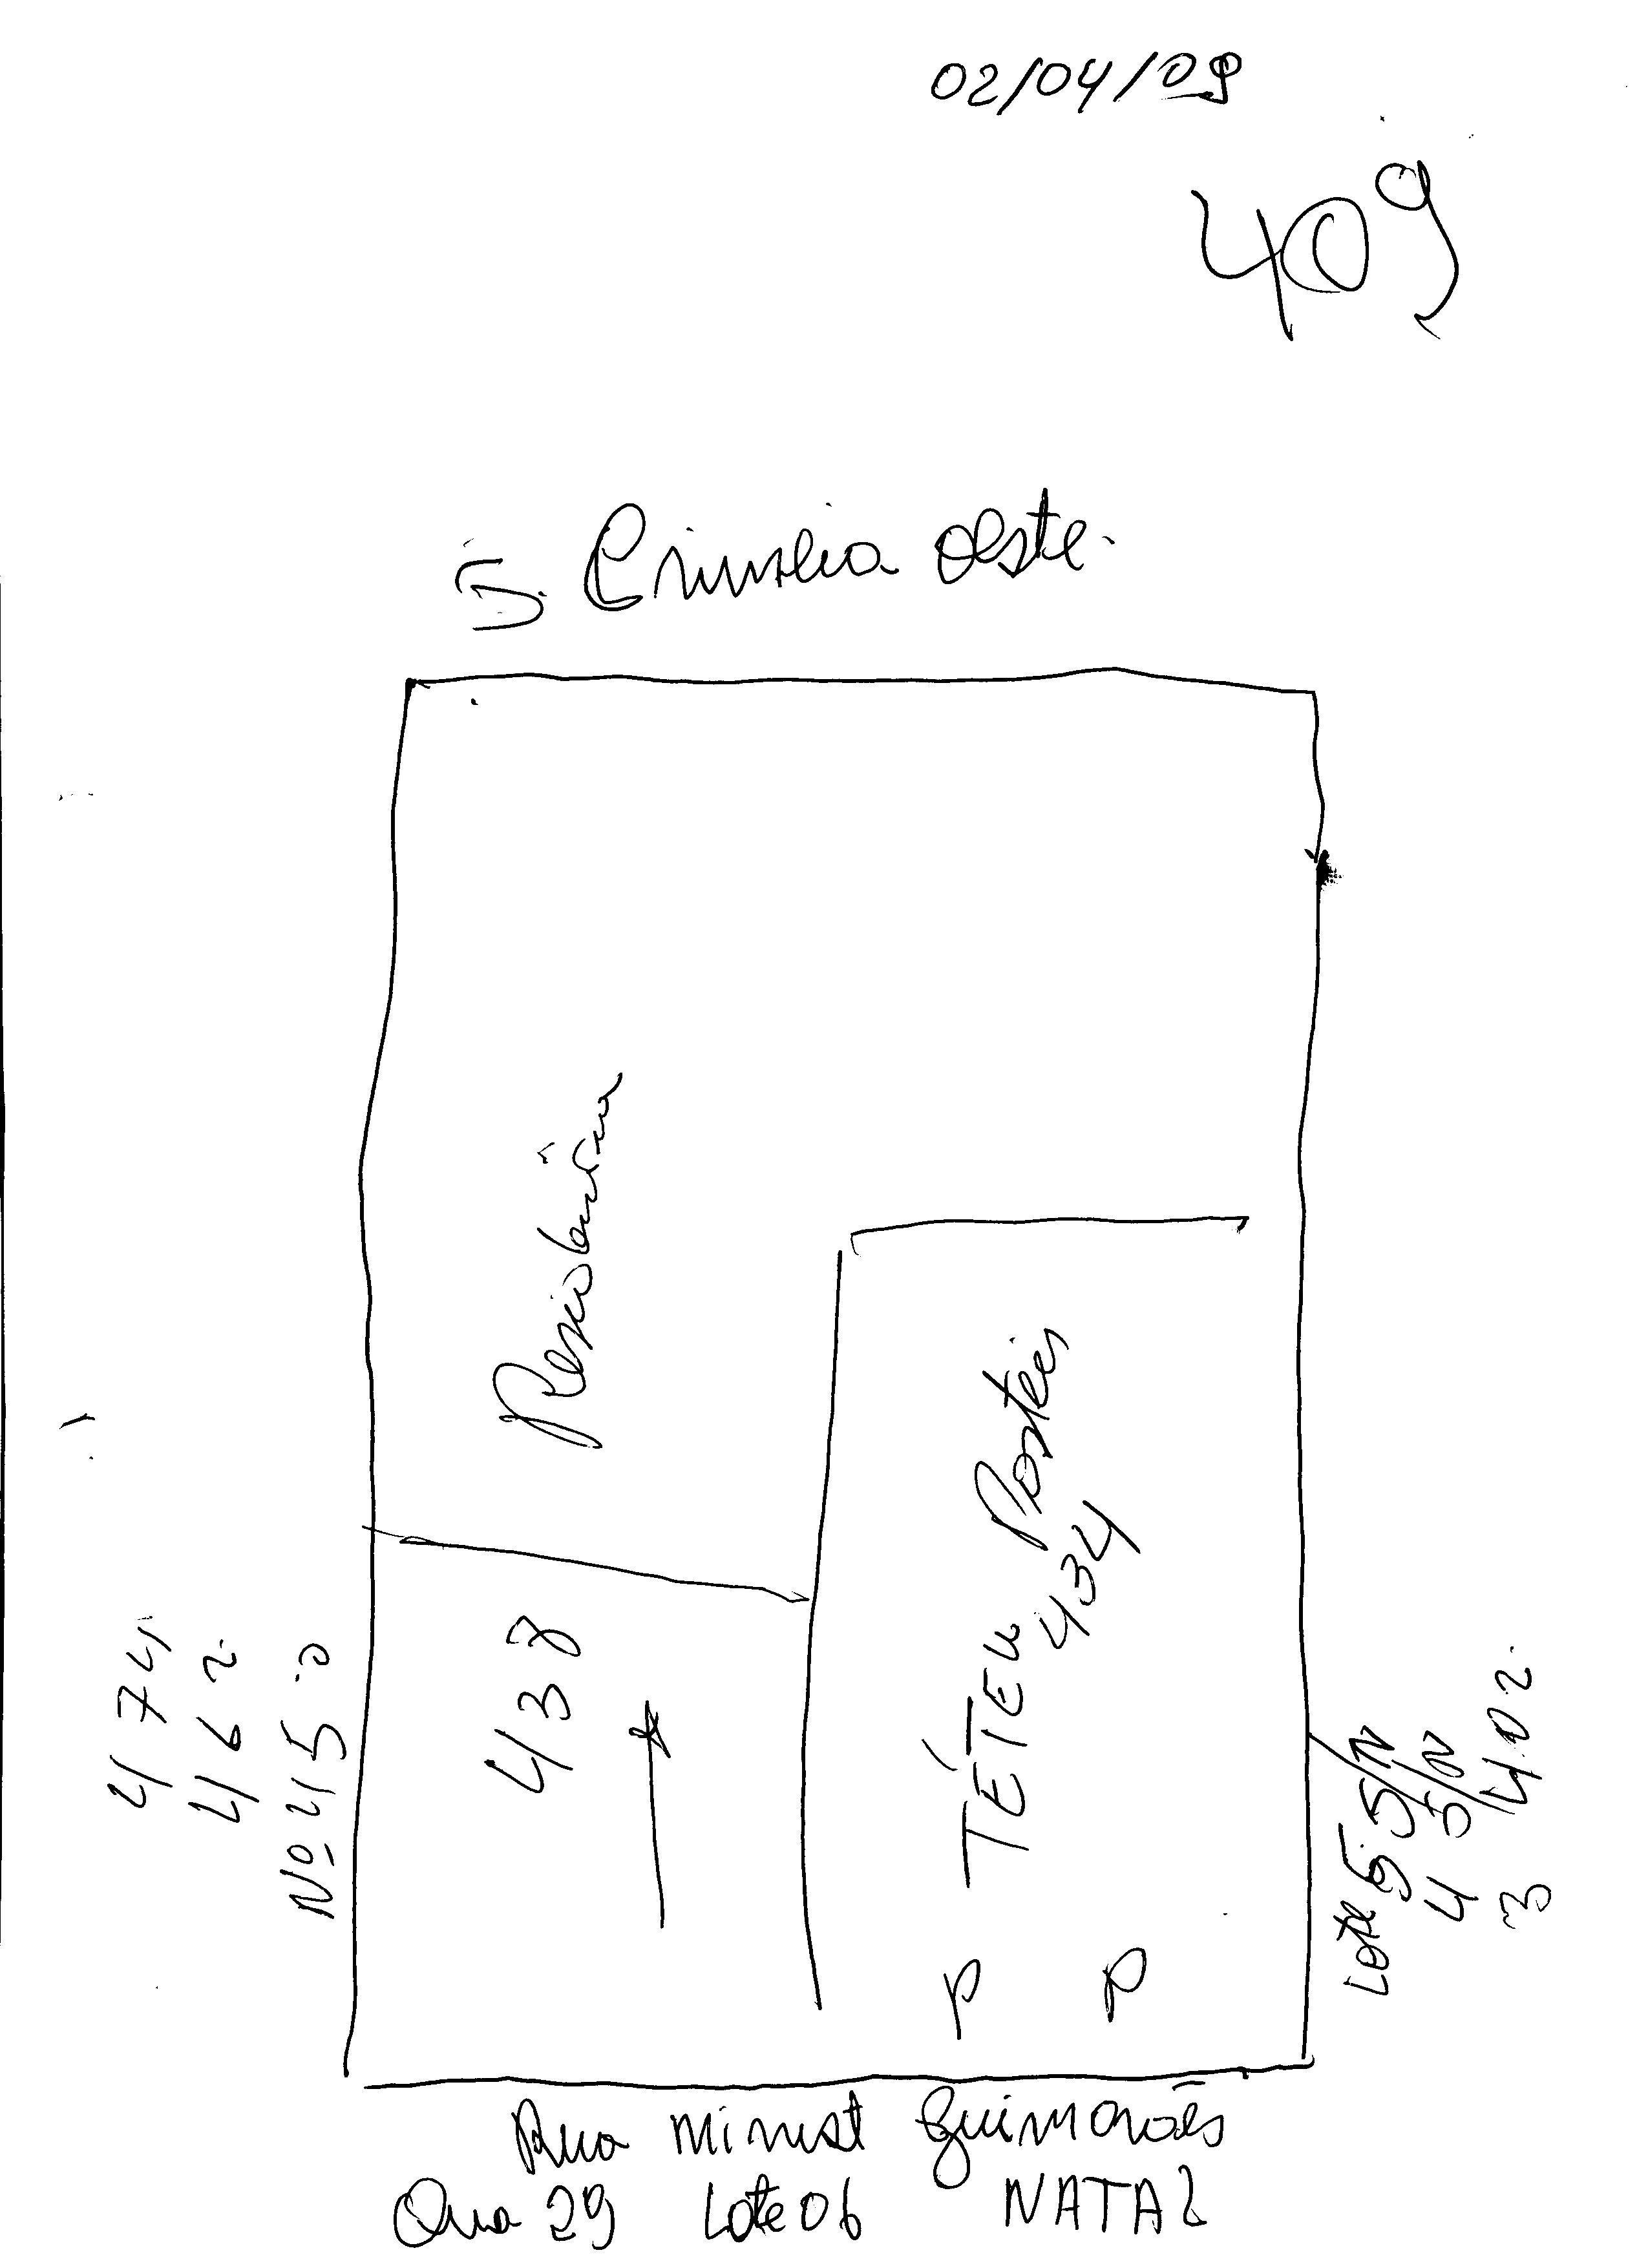 02/04/09
409
J. Crimeia oeste.
Residência
438
TÉTEU Pastéis
434
474
462
Nº 450
Lote 5 S/N
4 S/N
3 402
Rua Minist Guimarães
Qua 29 Lote 06 NATAL